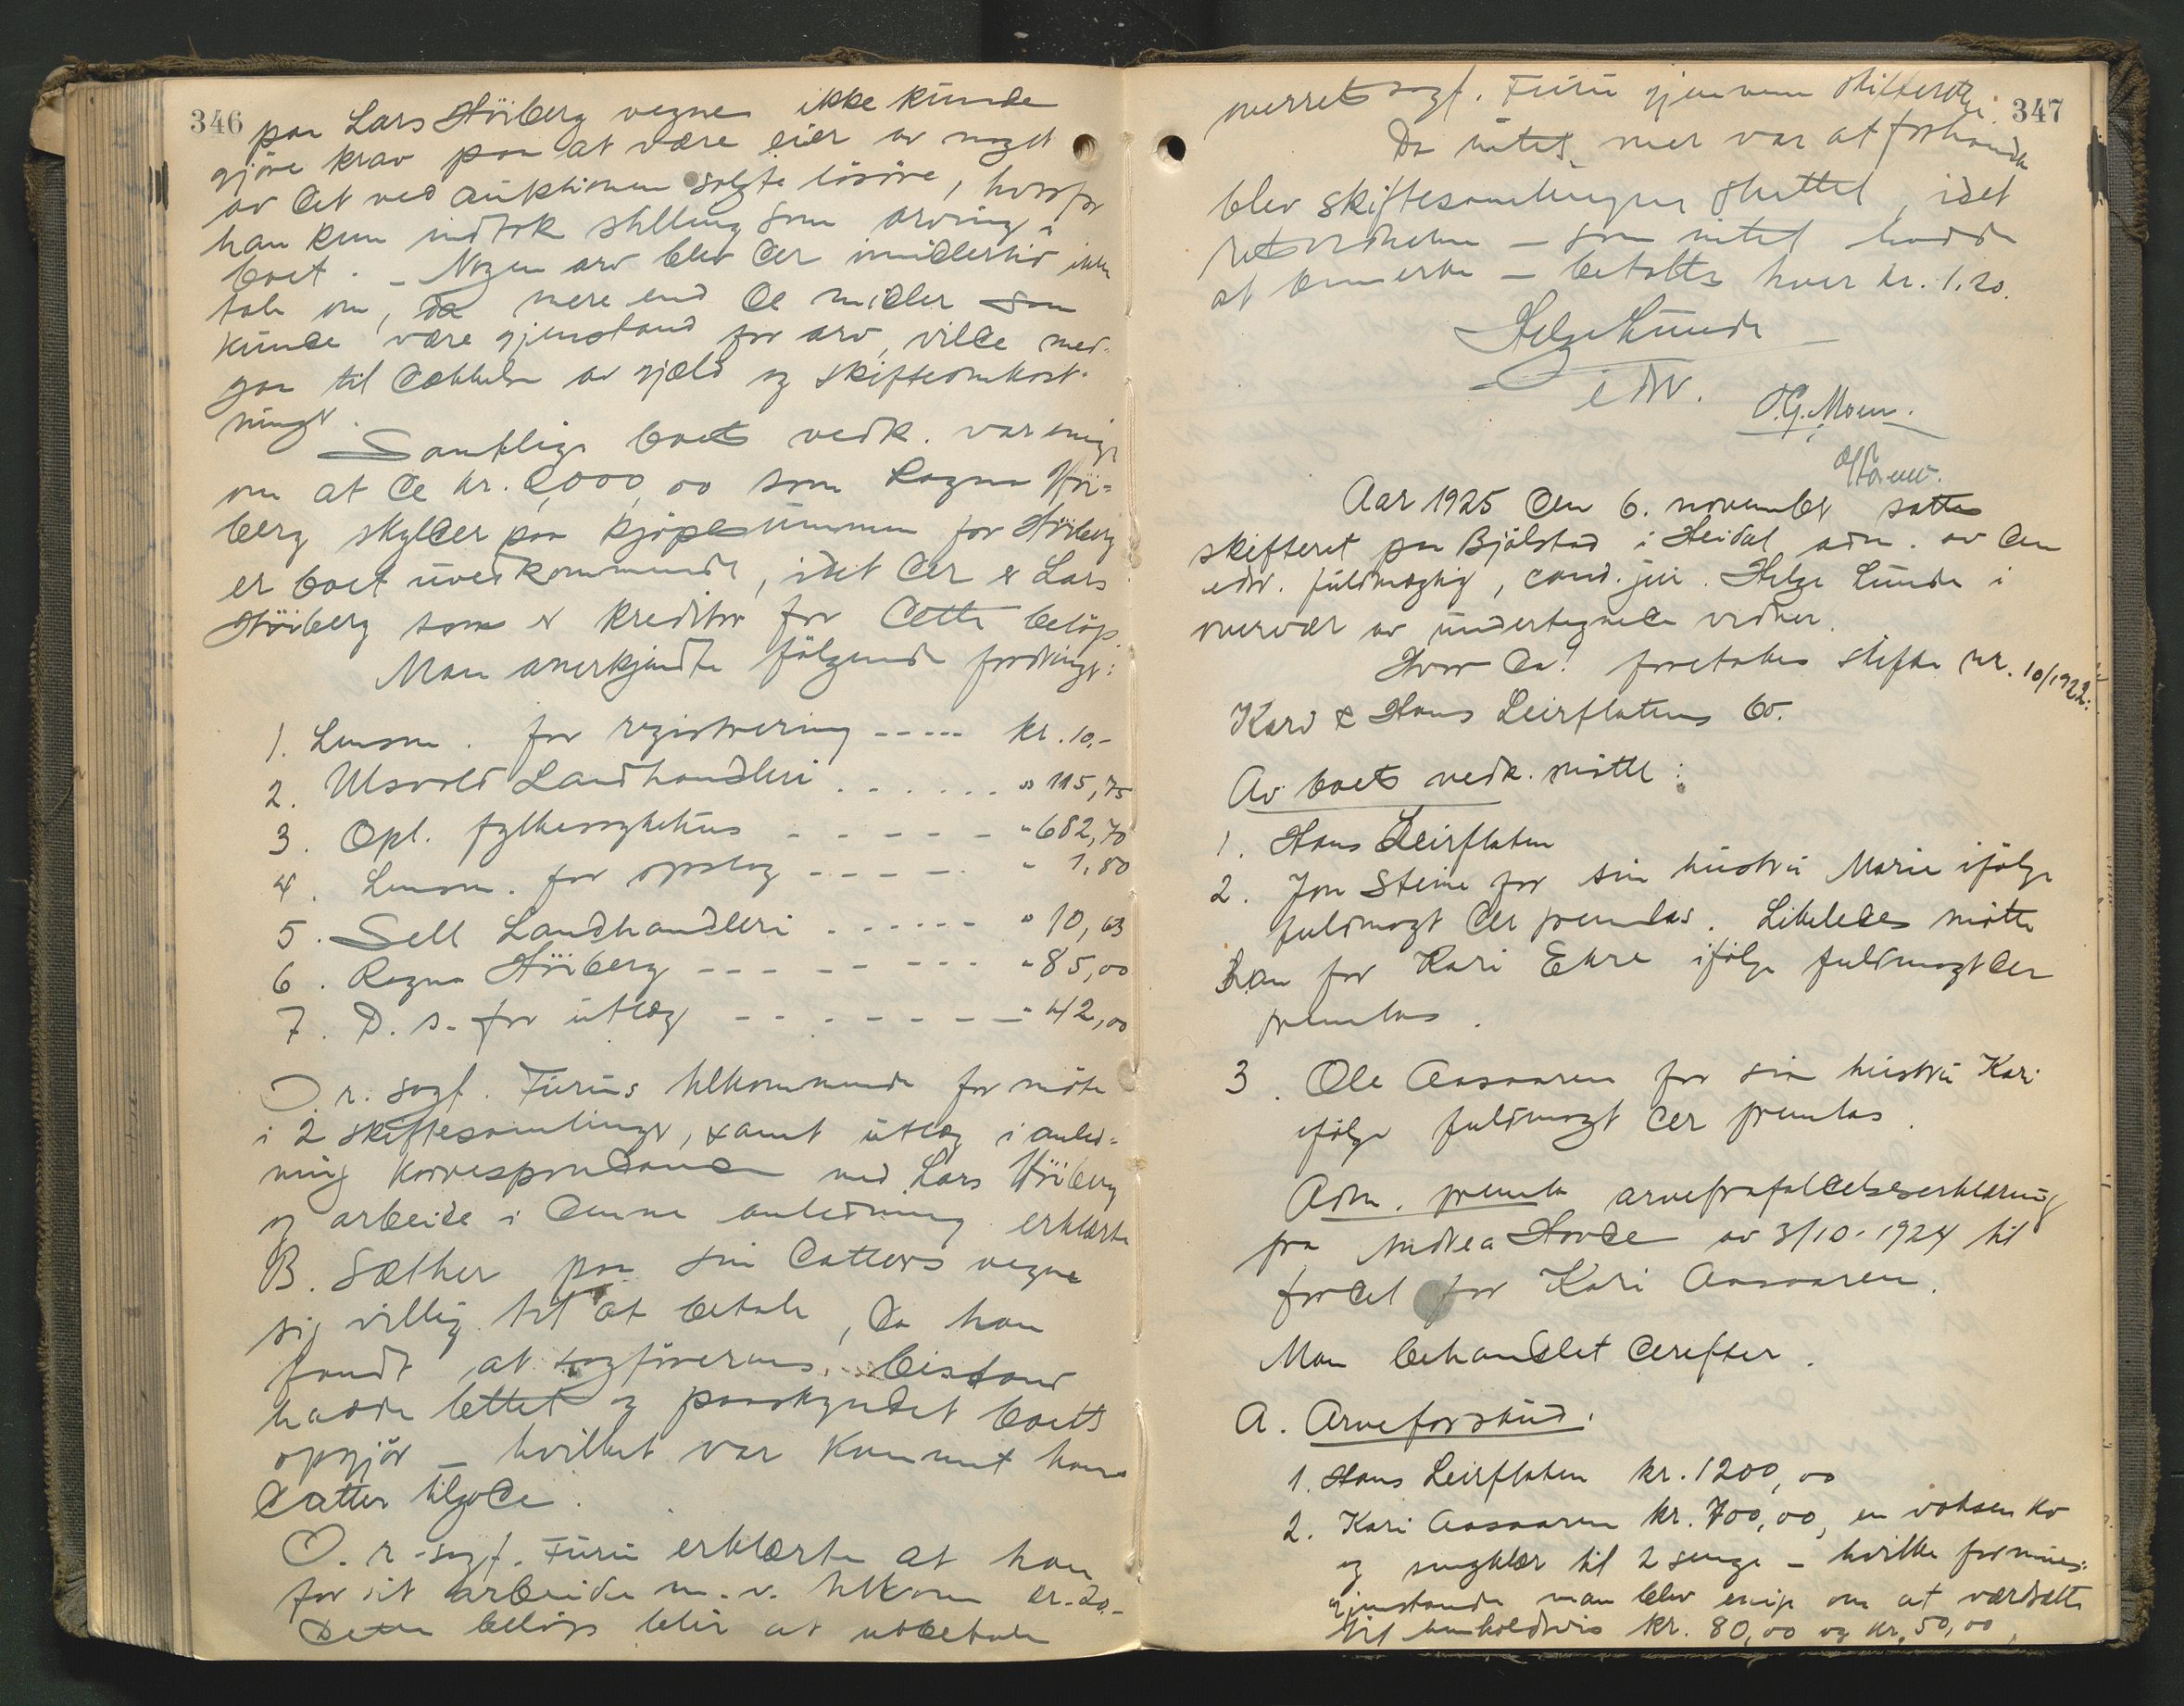 346
paa Lars Höiberg vegne ikke kunde
gjöre krav paa at være eier av noget
av det ved auktionen solgte lösöre, hvorfor
han kun indtok stilling som arving i
boet. - Nogen arv blev der imidlertid ikke
tale om, da mere end de midler som
kunde være gjenstand for arv, vilde med-
gaa til dækkelse av gjæld og skifteomkost-
ninger.
Samtlige boets vedk. var enige
om at de kr. 2,000,00 som Ragna Höi-
berg skylder paa kjöpesummen for Höiberg
er boet uvedkommende, idet der er Lars
Höiberg som er kreditor for dette belöp.
Man anerkjendte fölgende fordringer:
1. Lensm. for registrering ----- kr. 10.-
2. Ulsvold Landhandleri ...... " 115,75
3. Opl. fylkessykehus ----- " 682,70
4. Lensm. for opslag ----- " 1,80
5. Sell Landhandleri ------ " 10,63
6. Ragna Höiberg -------- " 85,00
7. D. s. for utlæg -------- " 42,00
O. r. sagf. Furus tilkommende for möte
i 2 skiftesamlinger, samt utlæg i anled-
ning korrespondance med Lars Höiberg
og arbeide i denne anledning erklærte
B. Sæther paa sin datters vegne
sig villig til at betale, da han
fandt at sagförerens bistand
hadde lettet og paaskyndet boets
opgjör - hvilket var kommet hans
datter tilgode.
O. r. sagf. Furu erklærte at han
for sit arbeide m. v. tilkom kr. 20.-
Dette belöp blir at utbetale
347
overretssagf. Furu gjennem skifteretten.
Da intet mer var at forhandle
blev skiftesamlingen sluttet, idet
retsvidnerne - som intet hadde
at bemerke - betaltes hver kr. 1.20.
Helge Lunde
edsv.
O.G. Moen.
Aar 1925 den 6. november sattes
skifteret paa Bjölstad i Heidal adm. av den
edsv. fuldmægtig, cand. jur. Helge Lunde i
overvær av undertegnede vidner.
Hvor da! foretokes skifte nr. 10/1922:
Kari & Hans Leirflatens bo.
Av boets vedk. mötte:
1. Hans Leirflaten
2. Jon Steine for sin hustru Marie ifölge
fuldmagt der fremlas. Likeledes mötte
han for Kari Ekre ifölge fuldmagt der
fremlas.
3. Ole Aasaaren for sin hustru Kari
ifölge fuldmagt der fremlas.
Adm. fremla arvefrafaldelseserklæring
fra Andrea Hovde av 3/10-1924 til
fordel for Kari Aasaaren.
Man behandlet derefter.
A. Arveforskud.
1. Hans Leirflaten kr. 1200,00
2. Kari Aasaaren kr. 700,00, en voksen ko
og sengklær til 2 senge - hvilke formues-
gjenstande man blev enige om at værdsette
til henholdsvis kr. 80,00 og kr. 50,00,